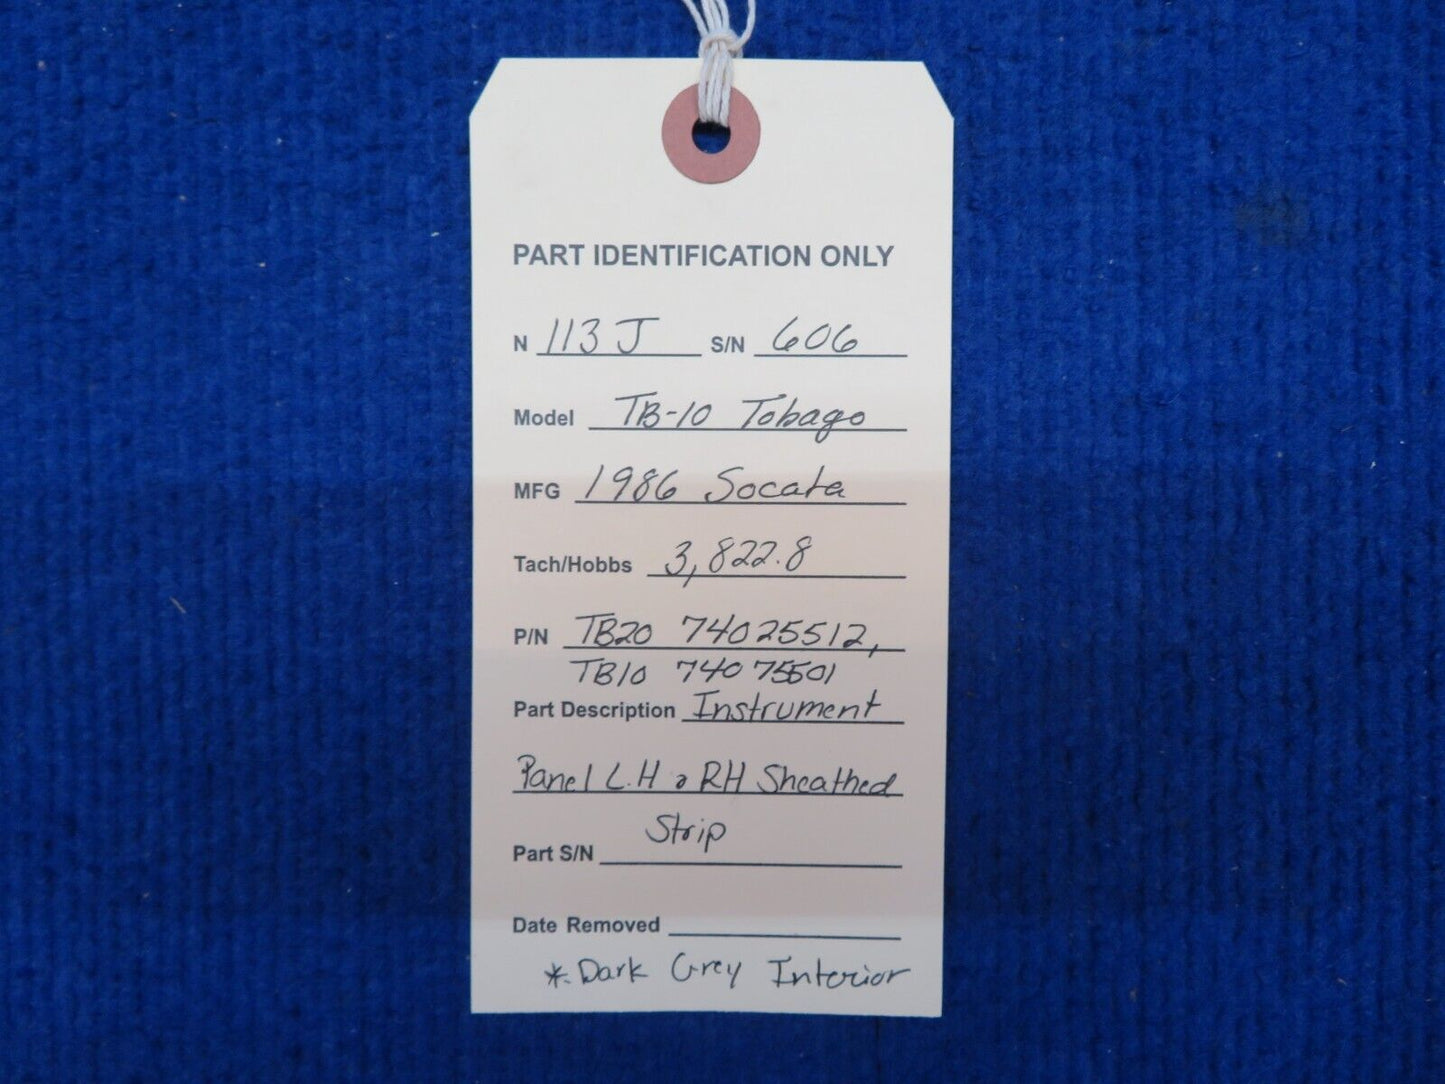 PART IDENTIFICATION ONLY
N 113J S/N 606
Model TB-10 Tobago
MFG 1986 Socata
Tach/Hobbs 3,822.8
P/N TB20 74025512,
TB10 74075501
Part Description Instrument
Panel L.H & RH Sheathed
Strip
Part S/N
Date Removed
*. Dark Grey Interior